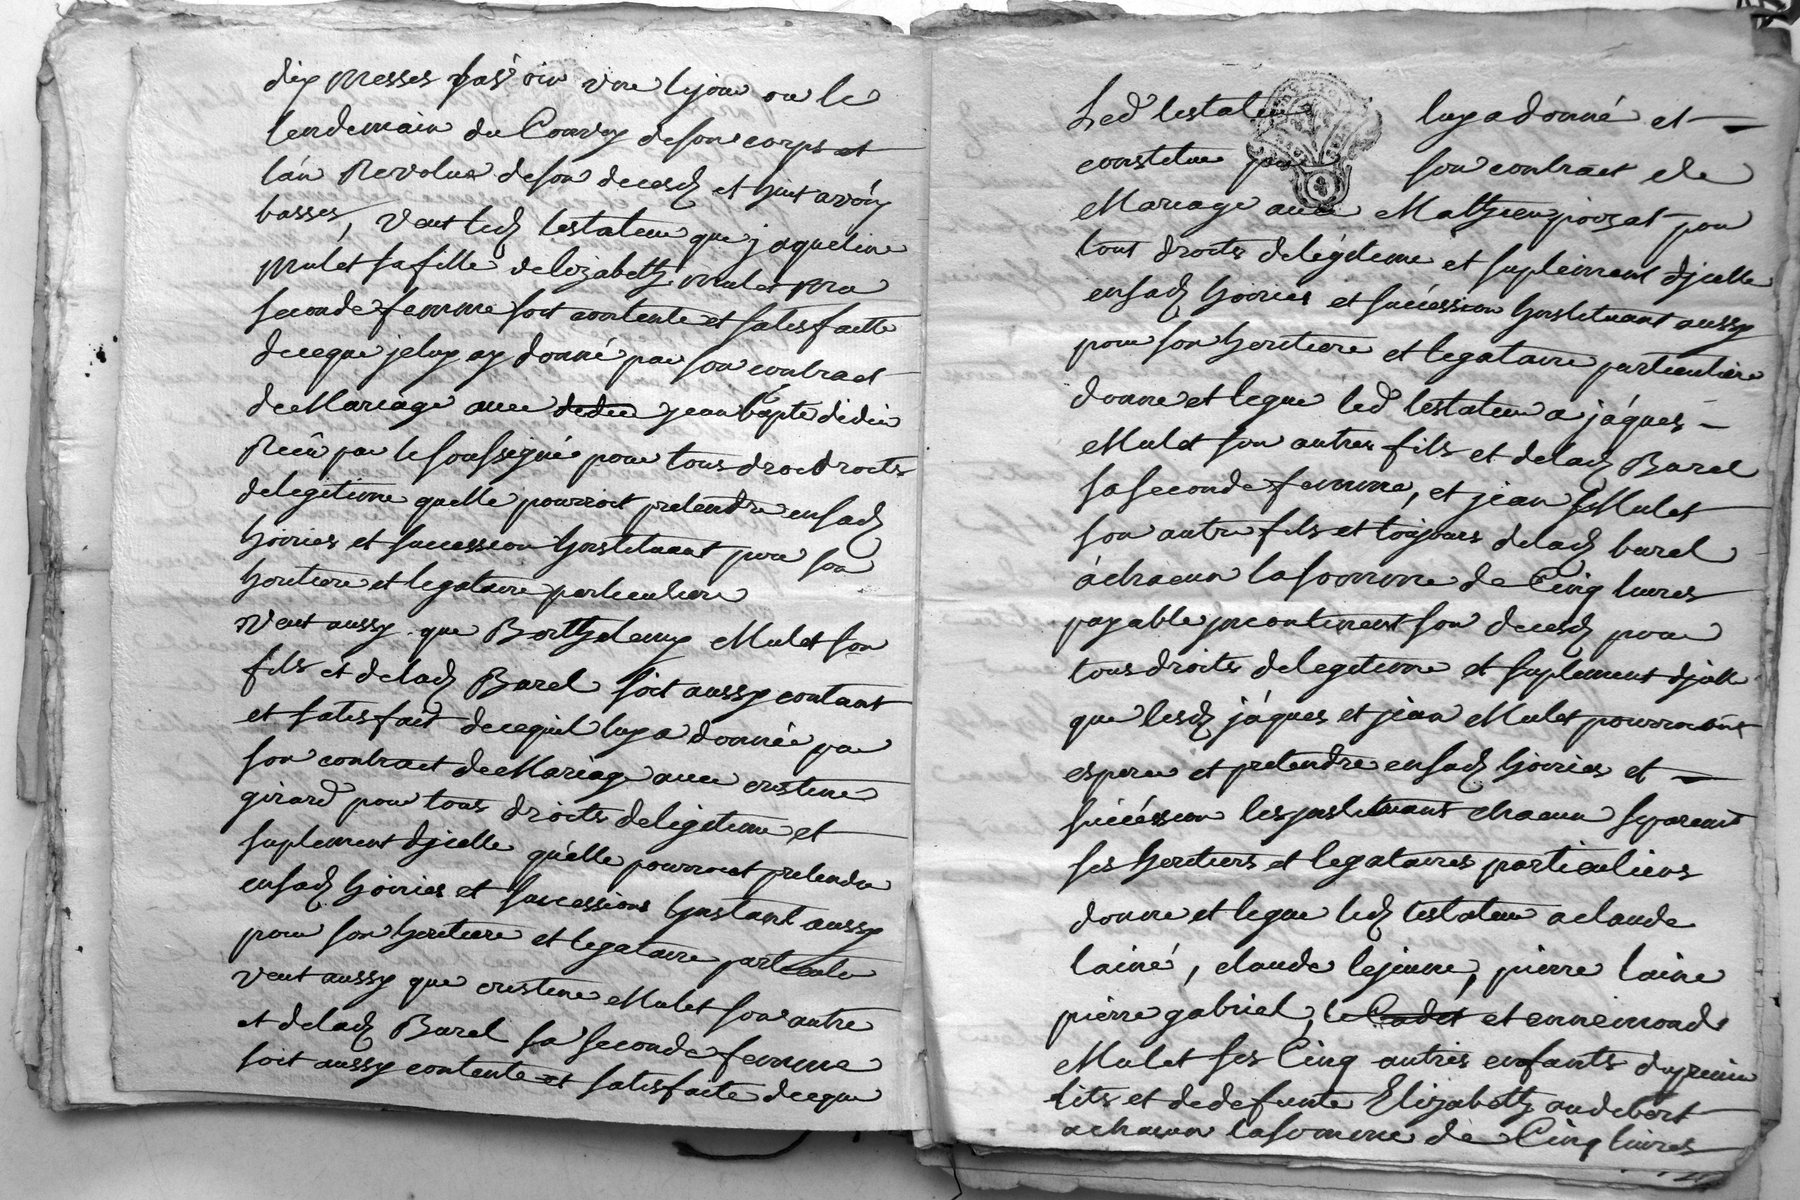 dix messes scavoir une le jour ou le
lendemain du Convoy de son corps et
lan Revolus de son decedz et huit avoix
basses, Veut ledz testateur que jaqueline
Mulet sa fille delizabeth mulet ma
seconde femme soit contente et satisfaitte
de ce que je luy ay donné par son contract
de Mariage avec didie jean bapte didier
Receu par le soussigné pour tous droi droits
de legitime quelle pourroit pretendre en sadz
hoiries et succession Jnstituant pour son
heritiere et legataire particuliere
Veut aussy que Barthelemy Mulet son
fils et deladz Burel soit aussy contant
et satisfait de ce quil luy a donnée par
son contract de Mariage avec cristine
girard pour tous droits de legitime et
suplement djcelle qu'elle pourroit pretendre
en sadz hoiries et successions Jnstant aussy
pour son heritiere et legataire particule
Veut aussy que cristine Mulet son autre
et deladz Burel sa seconde femme
soit aussy contente et satisfaite de ce que
Led testateur luy a donné et
constitue par son contract de
Mariage avec Mathieu pour
tout droits de légitime et suplement djcelle
en sadz hoiries et succéssion Jnstituant aussy
pour son heritiere et legataire particuliere
donne et legue led testateur a jáques
Mulet son autres fils et deladz Burel
sa seconde femme, et jean Mulet
son autre fils et toujours deladz burel
á chacun la somme de Cinq livres
payable jncontinent son decedz pour
tous droits de legitime et suplement djcelle
que lesdz jáques et jean Mulet pourroient
esperer et pretendre en sadz hoiries et
succéssion les jnstituant chacun separemt
ses heritiers et legataires particuliers
donne et legue ledz testateur a claude
lainé, claude lejeune, pierre laine
pierre gabriel, le Cadet et ennemond
Mulet ses Cinq autres enfants du premier
lits et de defunte Elizabeth audebert
a chacun la somme de Cinq livres